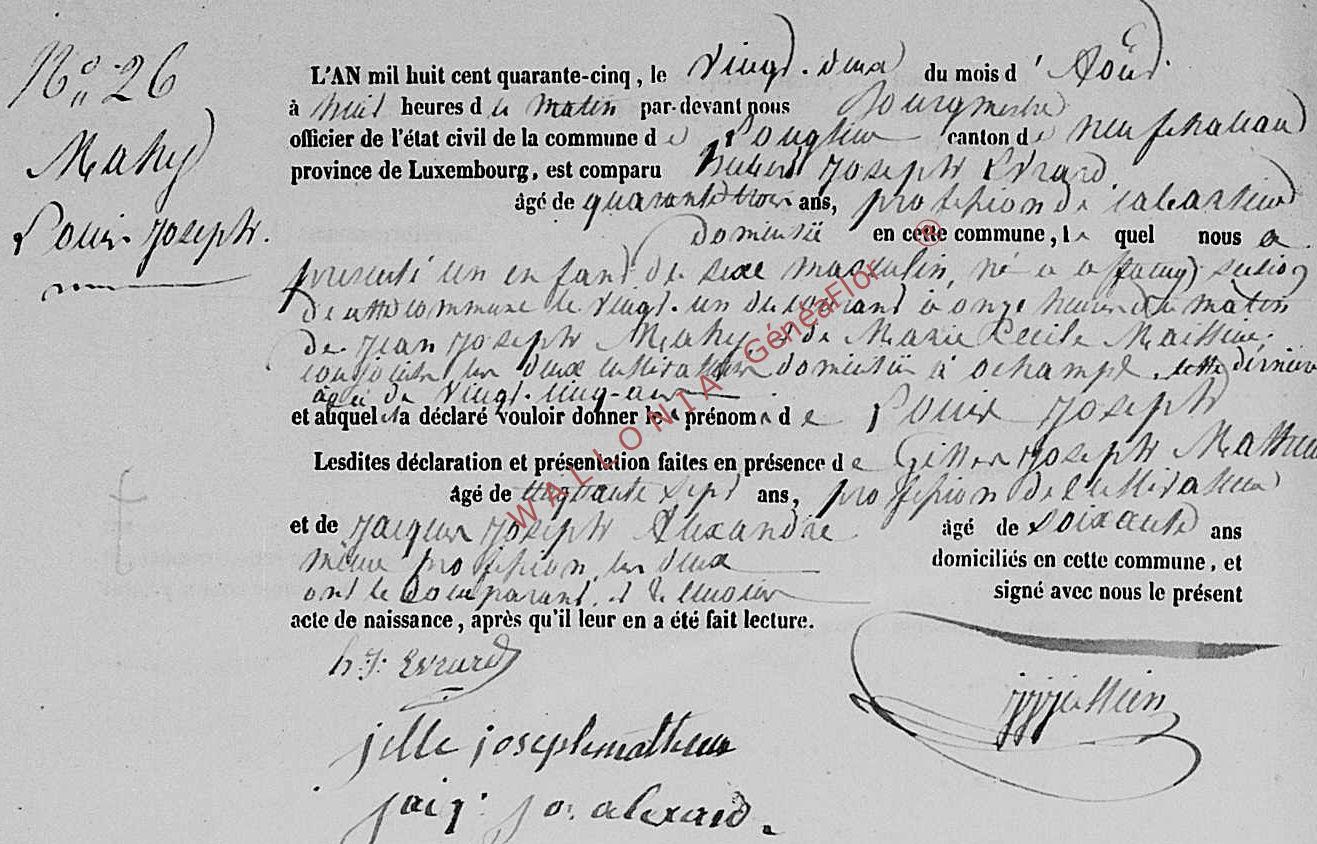 N° 26
Mahy
Louis Joseph.
L'AN mil huit cent quarante-cinq, le vingt-deux du mois d'Août
à huit heures du matin par-devant nous Bourgmestre
officier de l'état civil de la commune de canton de neufchateau
province de Luxembourg, est comparu hubert Joseph Evrard
âgé de quarante trois ans, profession de cabartier
domicilié en cette commune, le quel nous a
presenté un enfant de sexe masculin, né a section
de cette commune le vingt-un du courant à onze heures du matin
de Jean Joseph Mahy et de Marie Cecile
conjoints les deux cultivateurs domicilié à ochamps, cette derniere
agée de vingt-cinq ans
et auquel il a déclaré vouloir donner les prénoms de Louis Joseph
Lesdites déclaration et présentation faites en présence de Joseph Mathieu
âgé de sept ans, profession de cultivateur
et de Jacques Joseph Alexandre âgé de soixante ans
même profession, les deux domiciliés en cette commune, et
ont le comparant et témoins signé avec nous le présent
acte de naissance, après qu'il leur en a été fait lecture.
h. J. Evrard
jille joseph mathieu
jacq. jo. alexand.
WALLONIA - GénéaFlor ®